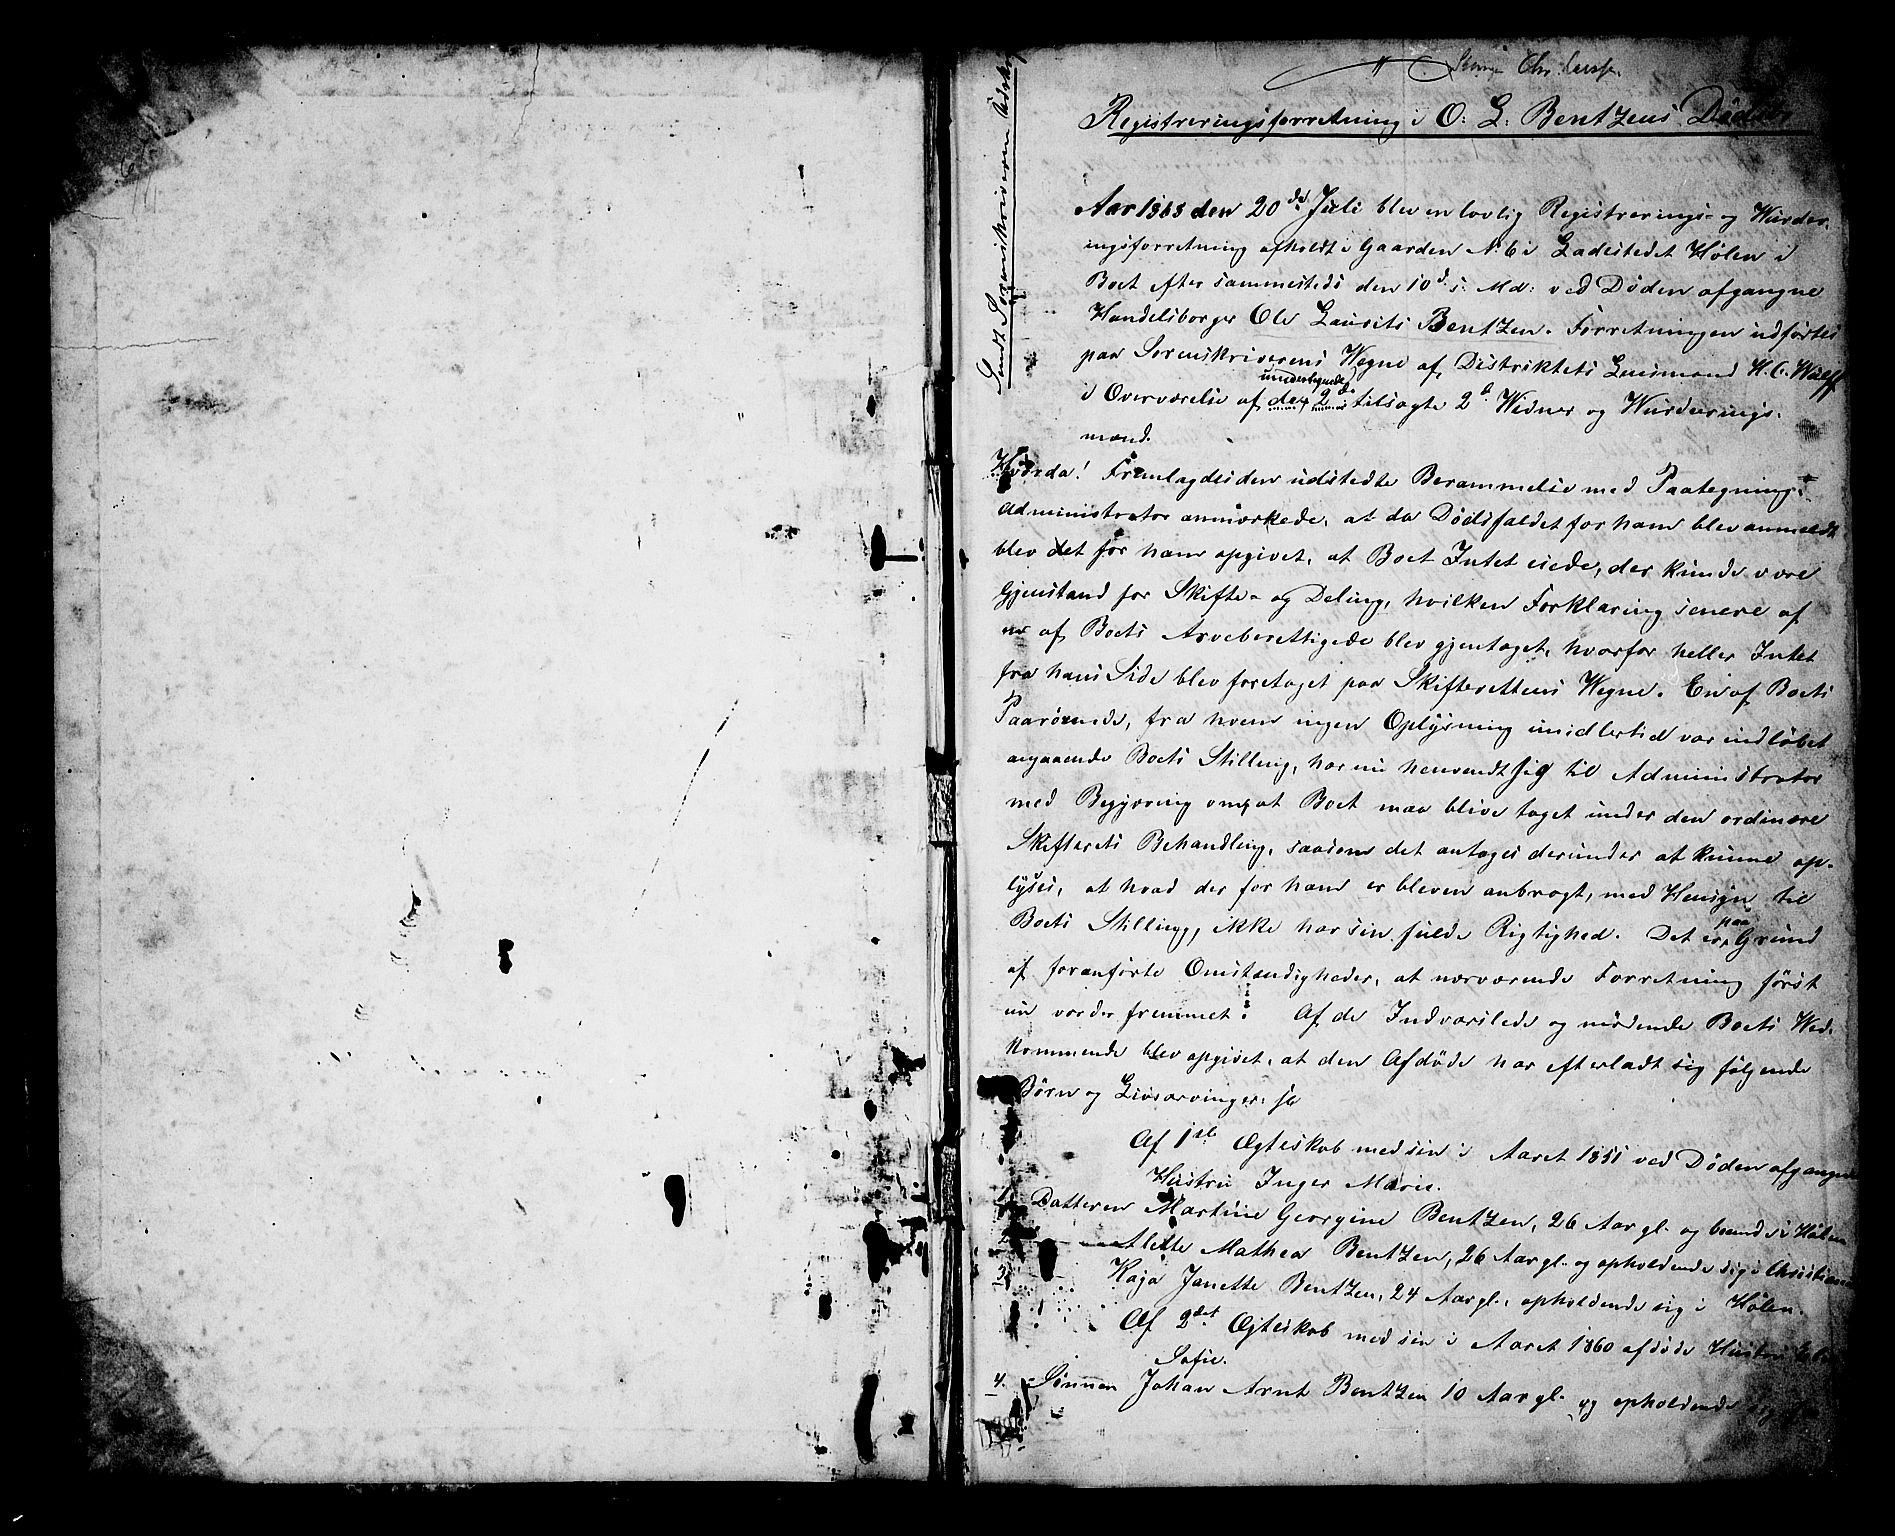 Registreringsforretning i O: L: Bentzens Dødsbo
Sendt Sorenskriveren Udskr
Aar 1865 den 20de Juli blev en lovlig Registrerings- og Vurder-
ingsforretning afholdt i Gaarden No 6 i Ladestedet Holen i
Boet efter sammesteds den 10d s: Md: ved Døden afgangne
Handelsborger Ole Laurits Bentzen. Forretningen udførtes
paa Sorenskriverens Vegne af Distriktets Lensmand H. C. Wulff
i Overværelse af undertegnede tilsagte 2de Vidner og Vurderings-
mænd.
Hvorda! Fremlagdes den udstedte Berammelse med Paategning.
Administrator anmærkede, at da Dødsfaldet for ham blev anmeldt
blev det for ham opgivet, at Boet Intet eiede, der kunde være
Gjenstand for Skifte- og Deling, hvilken Forklaring senere af
en af Boets Arveberettigede blev gjentaget, hvorfor heller Intet
fra hans Side blev foretaget paa Skifterettens Vegne. En af Boets
Paarørende, fra hvem ingen Oplysning imidlertid var indløbet
angaaende Boets Stilling, har nu henvendt sig til Administrator
med Begjæring om, at Boet maa blive taget under den ordinære
Skifterets Behandling, saasom det antages derunder at kunne op-
lyses, at hvad der for ham er bleven anbragt, med Hensyn til
Boets Stilling, ikke har sin fulde Rigtighed. Det er paa Grund
af foranførte Omstændigheder, at nærværende Forretning først
nu vorder fremmet. Af de Indvarslede og mødende Boets Ved-
kommende blev opgivet, at den Afdøde har efterladt sig følgende
Børn og Livsarvinger:
Af 1ste Ægteskab med sin i Aaret 1851 ved Døden afgangne
Hustru Inger Marie.
1. Datteren Martine Georgine Bentzen, 26 Aar gl. og boende i Holen
2. Alette Mathea Bentzen, 26 Aar gl. og opholdende sig i Christiania
3. Kaja Janette Bentzen, 24 Aar gl., opholdende sig i Holen.
Af 2det Ægteskab med sin i Aaret 1860 afdøde Hustru
Sofie.
4. Sønnen Johan Arnt Bentzen 10 Aar gl. og opholdende sig